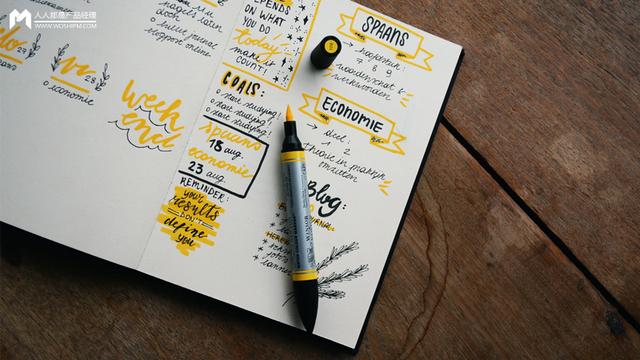 人人都是产品经理
WWW.WOSHIPM.COM
och
bullet journal
blogpost online
29
economie
28
week
end
DEPENDS
ON WHAT
YOU DO
today
make it
COUNT!
GOALS:
start studying!
start studying!
start studying!
spaans
18 aug.
economie
23 aug.
REMINDER:
your
results
DON'T
define
you
SPAANS
→ hoofdstuk:
7 8 9
woordenschat &
werkwoorden
ECONOMIE
→ deel:
1 2
theorie in praktijk
omzetten
Blog: